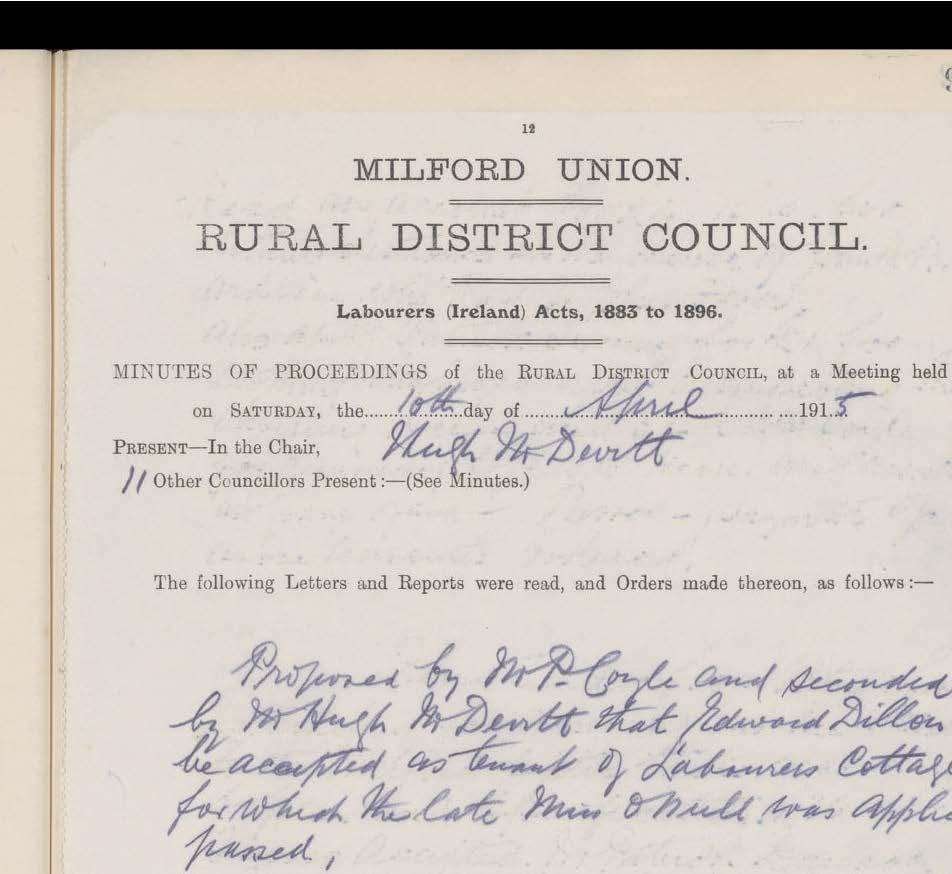 12
MILFORD UNION.
RURAL DISTRICT COUNCIL.
Labourers (Ireland) Acts, 1883 to 1896.
MINUTES OF PROCEEDINGS of the RURAL DISTRICT COUNCIL, at a Meeting held
on SATURDAY, the......10th.day of ......April..............191.5
PRESENT—In the Chair, Hugh McDevitt
11 Other Councillors Present:—(See Minutes.)
The following Letters and Reports were read, and Orders made thereon, as follows:—
Proposed by Mr P. Coyle and seconded
by Mr Hugh McDevitt that Edward Dillon
be accepted as tenant of Labourers Cottag
for which the late Miss O'Neill was applic
passed,